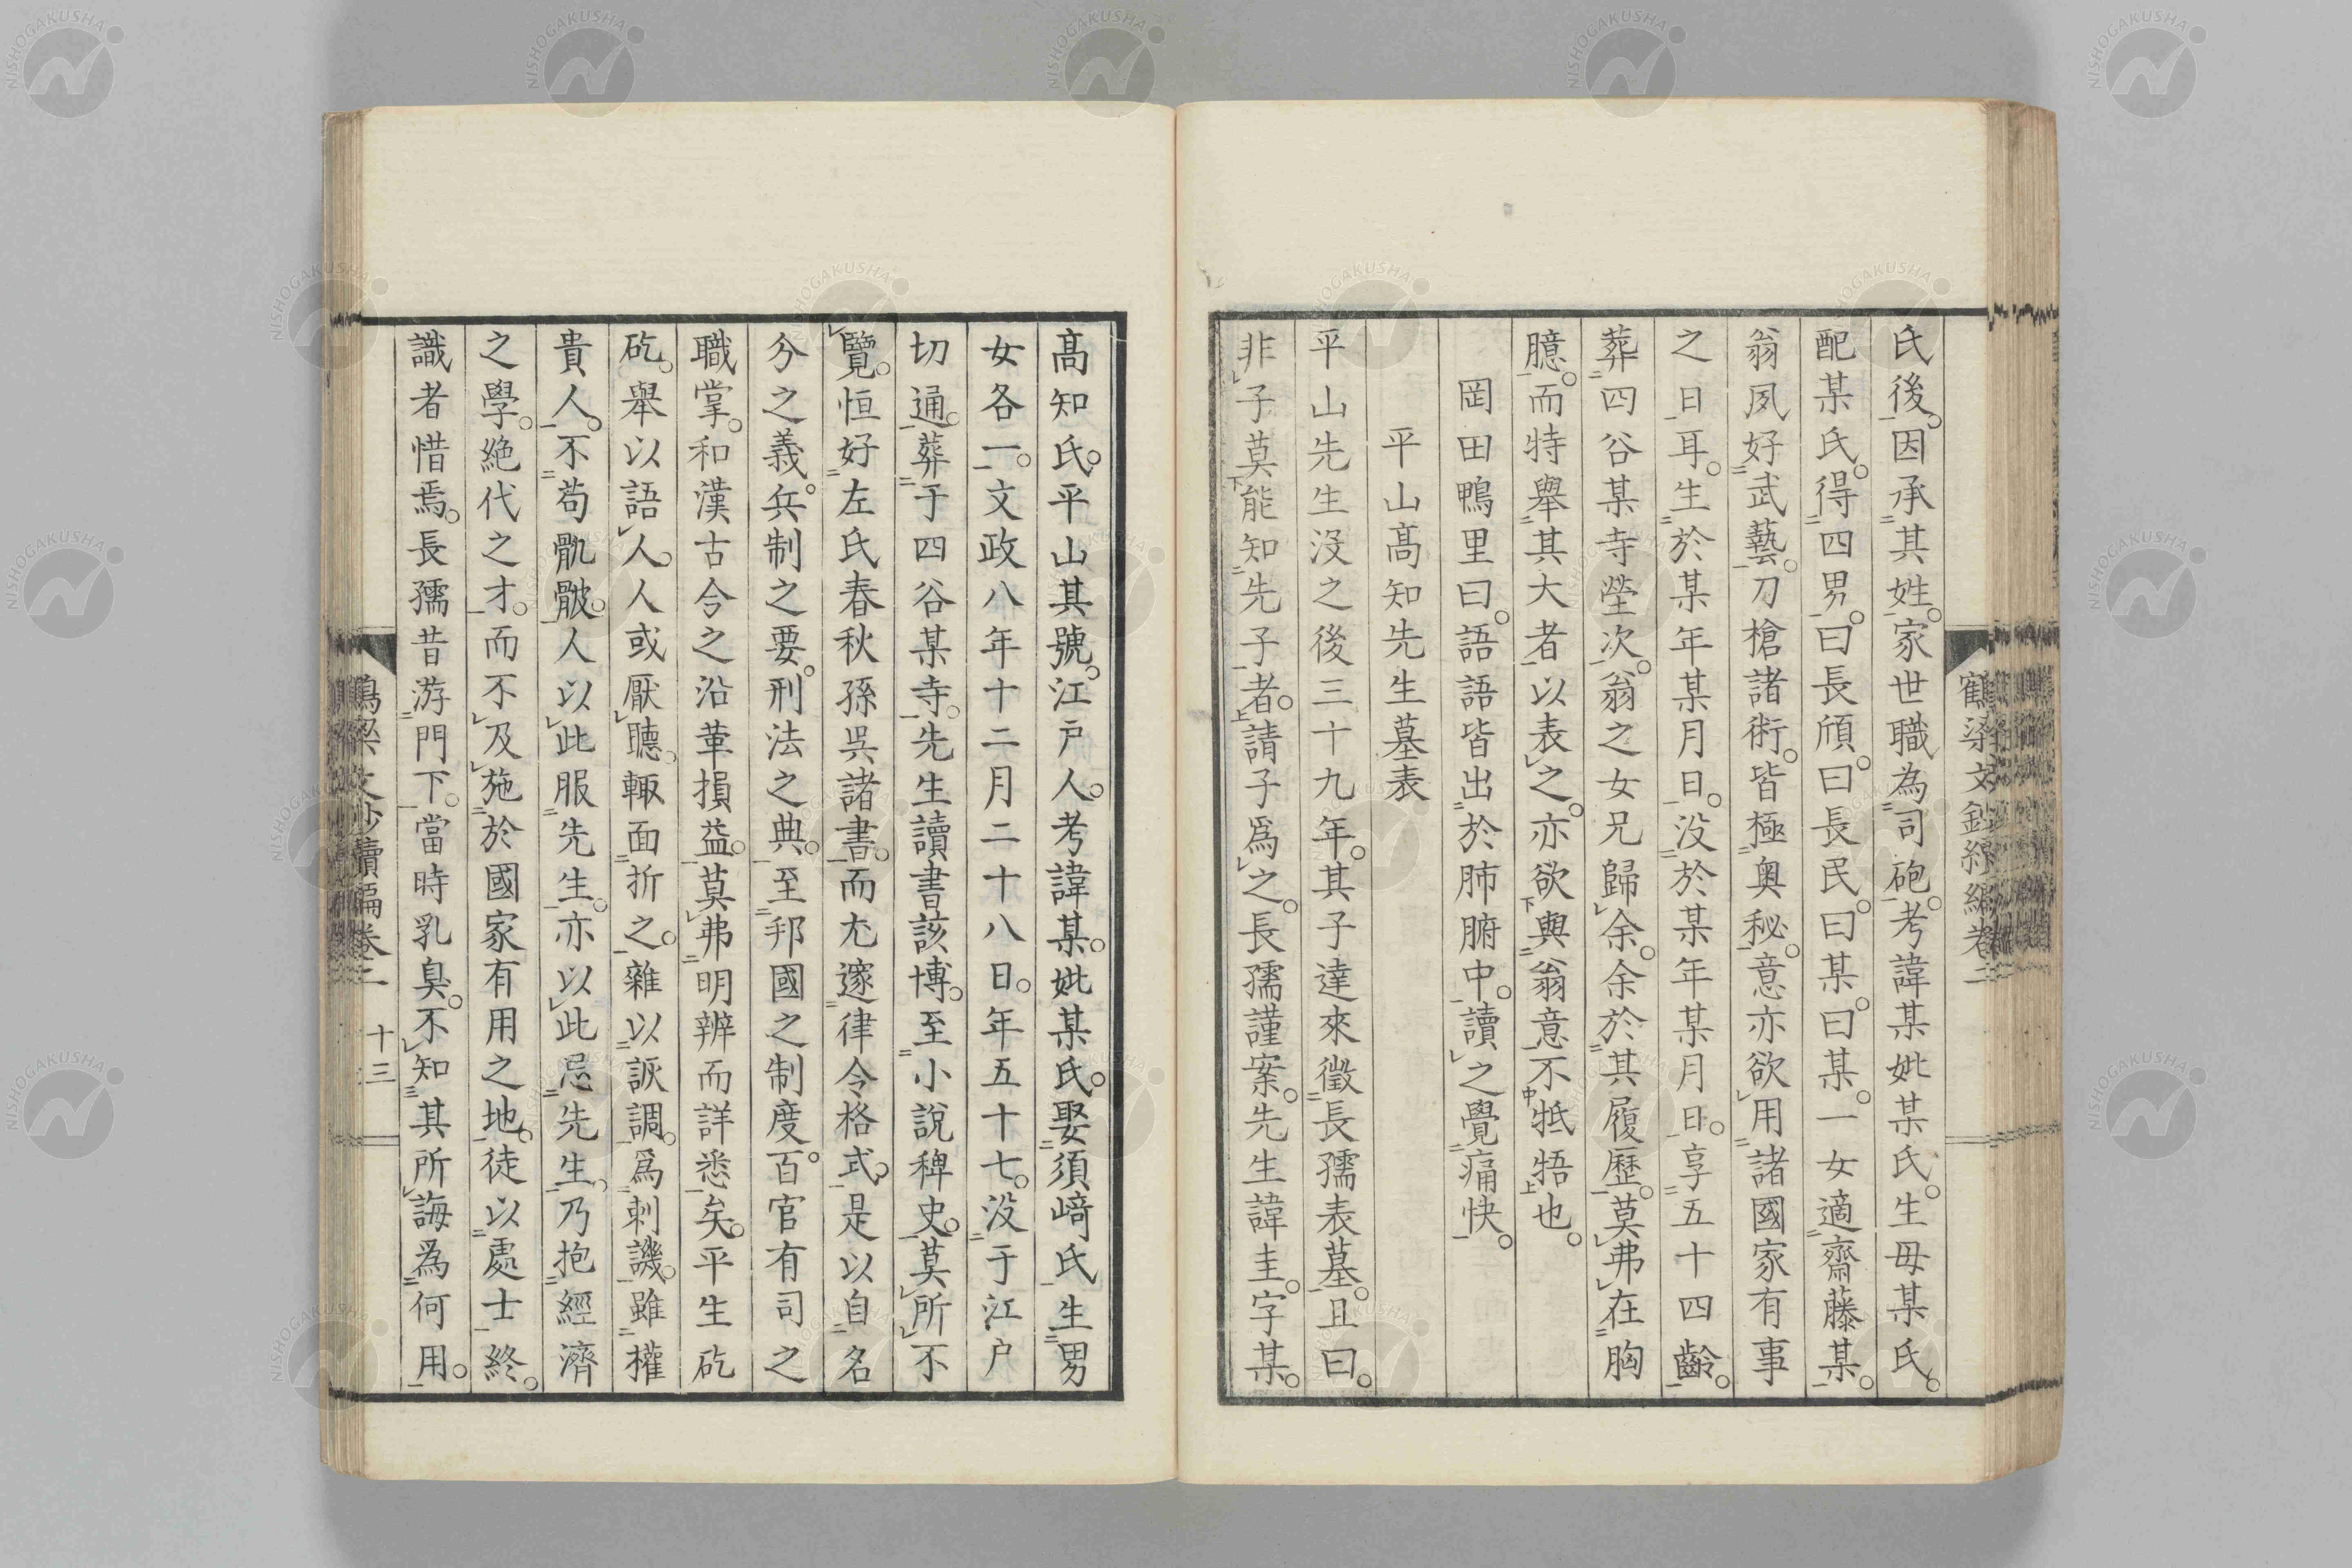 鶴梁文鈔續編卷二
氏後。因承其姓。家世職為司砲。考諱某妣某氏。生毋某氏。
配某氏。得四男。曰長頎。曰長民。曰某。曰某。一女適齋藤某。
翁夙好武藝。刀槍諸術。皆極奥秘。意亦欲用諸國家有事
之日耳。生於某年某月日。没於某年某月日。享五十四齡。
葬四谷某寺塋次。翁之女兄歸余。余於其履歷。莫弗在胸
臆。而特舉其大者以表之。亦欲與翁意不牴牾也。
岡田鴨里曰。語語皆出於肺腑中。讀之覺痛快。
平山高知先生墓表
平山先生沒之後三十九年。其子達來徵長孺表墓。且曰。
非子莫能知先子者。請子爲之。長孺謹案。先生諱圭。字某。
高知氏。平山其號。江戸人。考諱某。妣某氏。娶須﨑氏生男
女各一。文政八年十二月二十八日。年五十七。没于江户
切通。葬于四谷某寺。先生讀書該博。至小說稗史。莫所不
覽。恒好左氏春秋孫吳諸書。而尤邃律令格式。是以自名
分之義。兵制之要。刑法之典。至邦國之制度。百官有司之
職掌。和漢古今之沿革損益。莫弗明辨而詳悉矣。平生矻
矻。舉以語人。人或厭聽。輙面折之。雜以詼調。爲刺譏。雖權
貴人。不苟骫骳。人以此服先生。亦以此忌先生。乃抱經濟
之學。絶代之才。而不及施於國家有用之地。徒以處士終。
識者惜焉。長孺昔游門下。當時乳臭。不知其所誨爲何用。
鶴梁文鈔續編卷二 十三